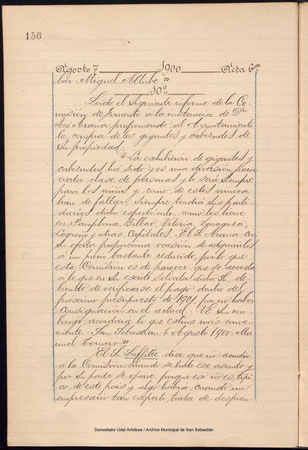 156
Agosto 7 1900 Acta 6ª
bdr. Miguel Altube"
10º
Leido el siguiente informe de la Co-
misión de fomento a la instancia de Dn
José Arana proponiendo al Ayuntamiento
la compra de los gigantes y cabezudos de
su propiedad.
"La exhibición de gigantes y
cabezudos ha sido y es una diversion para
cierta clase de personas y lo será siempre
para los niños y como de estos nunca
han de faltar, siempre tendrá sus parti-
darios dicho espectáculo, como los tiene
en Pamplona, Bilbao, Vitoria, Zaragoza,
Logroño y otras Capitales. El Sr Arana, co-
mo ofrece proporciona ocasión de adquirirlos
a un precio bastante reducido, por lo que
esta Comisión es de parecer que se acceda
a lo que en el escrito solicita dicho Sr. de-
biendo de verificarse el pago dentro del
próximo presupuesto de 1901 por no haber
consignación en el actual. V.E. sin em-
bargo acordará lo que estime mas conve-
niente. San Sebastián 6 Agosto 1900. Ma-
nuel
El Sr Laffitte dice que no acudió
a la Comisión cuando se trató ese asunto y
por su parte se opone, porque eso no es típi-
co de este país y algo habrá cuando un
empresario tan experto trata de despren-
Donostiako Udal Artxiboa / Archivo Municipal de San Sebastián